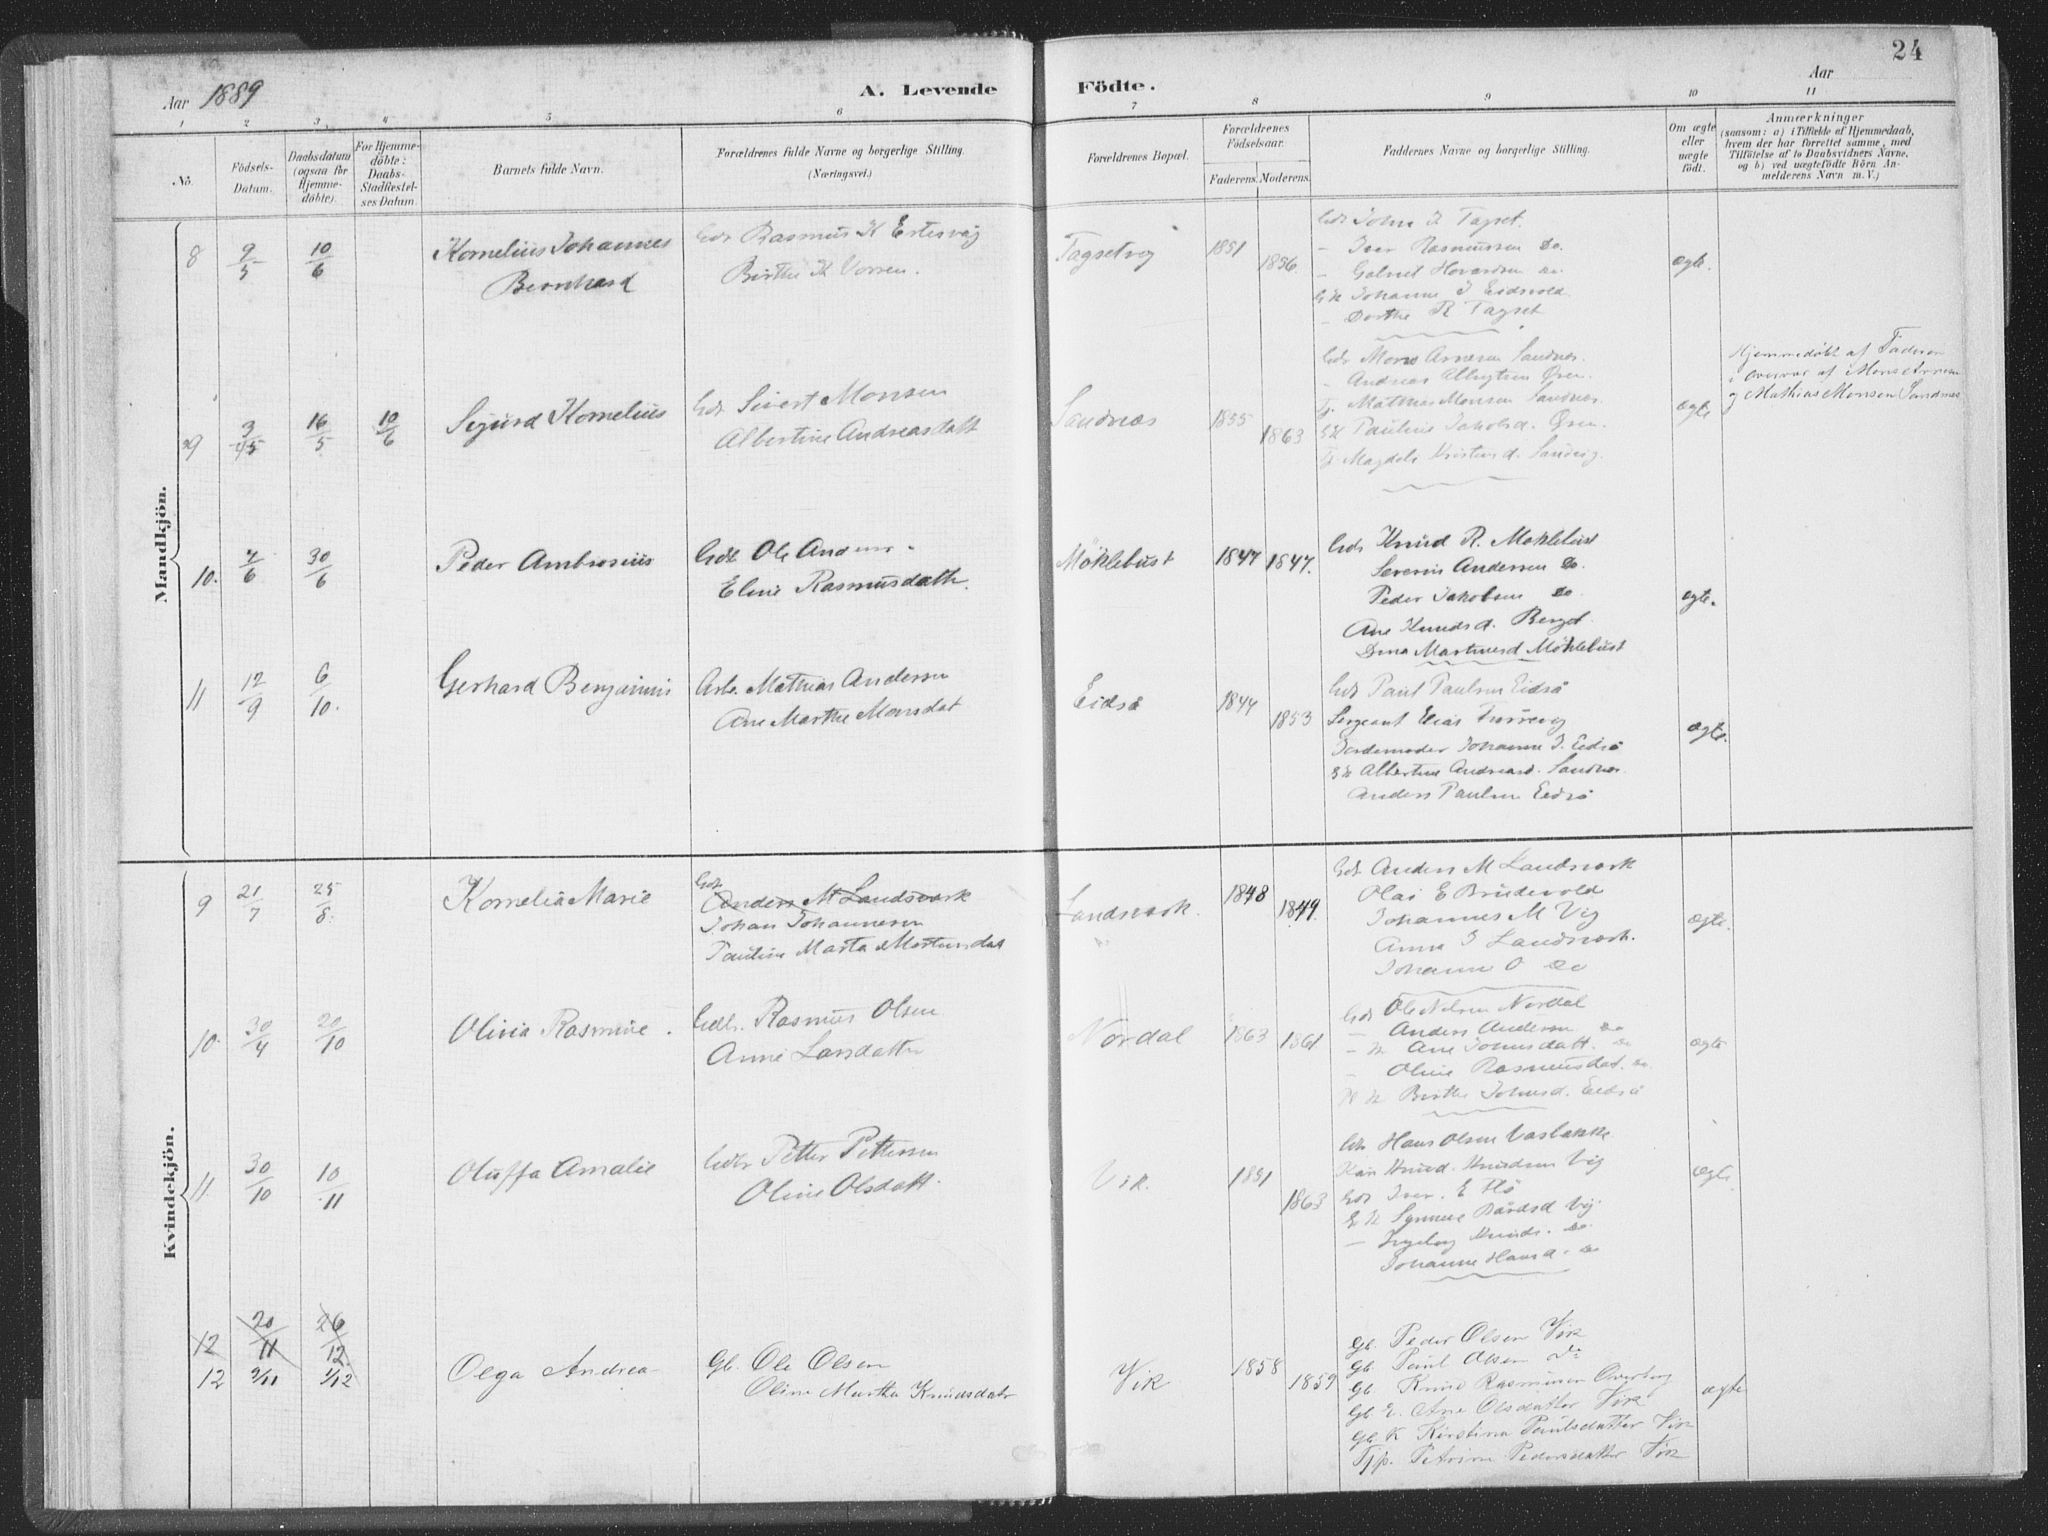 24
Aar 1889
A. Levende Födte.
Aar
1 2 3 4 5 6 7 8 9 10 11
No.
Födsels-Datum.
Daabsdatum (ogsaa for Hjemmedöbte).
For Hjemmedöbte: Daabs-Stadfæstelses Datum.
Barnets fulde Navn.
Forældrenes fulde Navne og borgerlige Stilling.
(Næringsvei.)
Forældrenes Bopæl.
Forældrenes Födselsaar.
Faderens. Moderens.
Faddernes Navne og borgerlige Stilling.
Om ægte eller uægte födt.
Anmærkninger
(saasom: a) i Tilfælde af Hjemmedaab, hvem der har forrettet samme, med Tilföielse af to Daabsvidners Navne, og b) ved uægtefödte Börn Anmelderens Navn m.V.)
Mandkjön.
8 9/5 10/6 Kornelius Johannes Bernhard
Gdr Rasmus K Ertesvåg
Birthe K Vorren.
Tagsetvg 1851 1856.
Gdr John I Tagset.
- Iver Rasmussen Do.
- Gabriel Hovardsen Do
Johanne J Eidsvold
- Dorthe R Tagset
ægte.
9 3/5 16/5 10/6 Sigurd Kornelius
Gdr Sivert Monsen
Albertine Andreasdatt
Sandnæs 1855 1863
Gdr Mons Arnesen Sandnæs.
- Andreas Øren.
Tj. Mathias Monsen Sandnæs.
Pauline Jakobsd. Øren.
Tj. Magdele
ægte
Hjemmedöbt af Faderen
i overvær af Mons Arnesen
og Mathias Monsen Sandnæs
10. 7/6 30/6 Peder Ambrosius
Gdr Ole Andersen
Eline Rasmusdatt.
Möklebust 1847 1847.
Gdr Knud R. Moklebust
Severin Andersen Do.
Peder Jakobsen Do
Ane Knudsd. Berget
Dina Martinusd Möklebust
ægte.
11 12/9 6/10. Gerhard Benjamin
Arb. Mathias Andersen
Ane Marthe Monsdat
Eidså 1844 1853
Gdr Paul Paulsen Eidså
Sergeant Elias
Jordemoder Johanne J. Eidså
Albertine Andreasd. Sandnæs
Anders Paulsen Eidså
ægte.
Kvindekjön.
9 21/7 25/8. Kornelia Marie
Gdr
Anders M Landsvork
Johan Johannesen
Pauline Marta Martinsdat
Landsvork. 1848 1849.
Gdr Anders M Landsvork
Olai E Brudevold
Johannes M Vig
Anna J Landsvork.
Johanne O Do
ægte.
10. 30/4 20/10 Olivia Rasmine.
Gdbr. Rasmus Olsen
Anne Larsdatter
Nordal 1863 1861
Gdr Ole Nilsen Nordal
- Anders Andersen Do
- K Ane Johnsdatt. Do
- Oline Rasmusdat. Do
Birthe Johnsd. Eidså
ægte
11. 30/10 10/11 Oluffa Amalie
Gdbr Petter Pettersen
Oline Olsdatt.
Vik. 1851 1863
Gdr Hans Olsen
Knud Knudsen Vig
Gdr Iver E
Synneve Bårdsd Vig
- Ingeborg Knuds. Do
Johanne Hansd. Do
ægte.
12 20/11 26/12
12 9/11 1/12 Olga Andrea
Gb. Ole Olsen
Oline Martha Knudsdatr
Vik 1858 1859
Gb. Peder Olsen Vik
Gb. Paul Olsen Do
Gb Knud Rasmussen Overberg
Gb. E. Ane Olsdatter Vik
Gb. K Kirstina Paulsdatter Vik
Tjp. Petrine Pedersdatter Vik
ægte